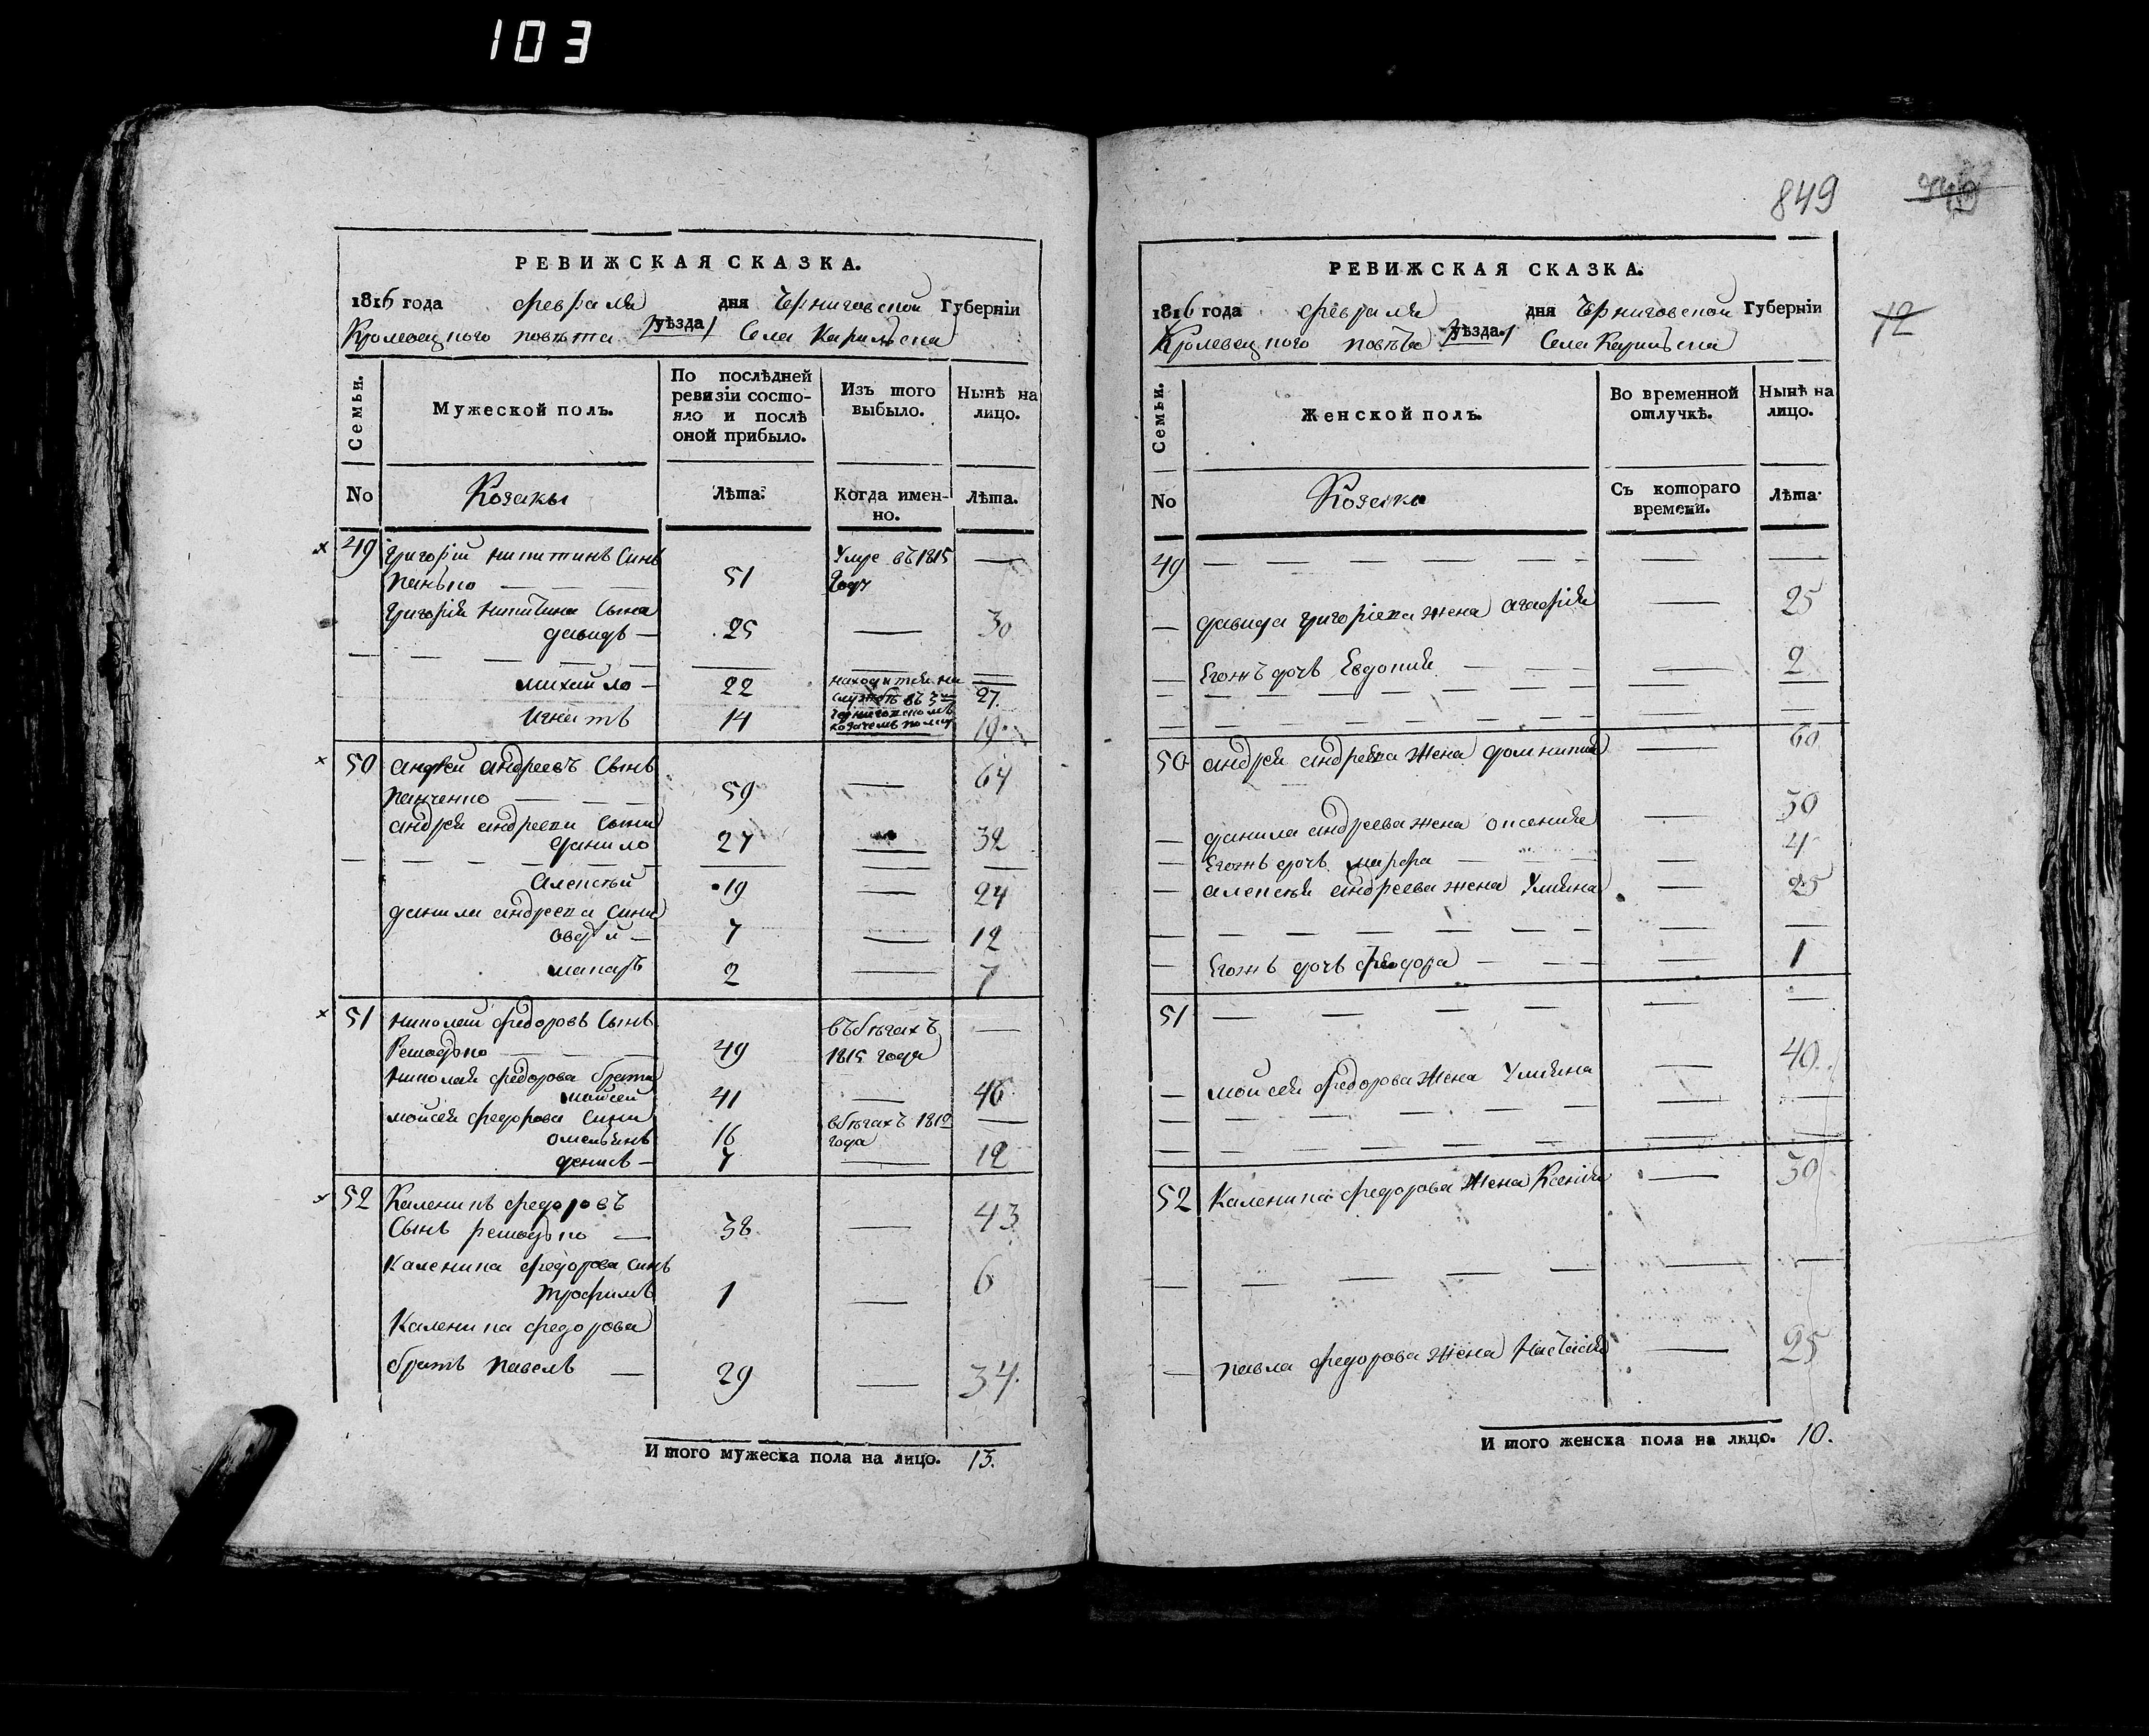 103
849
РЕВИЖСКАЯ СКАЗКА.
1816 года февраля дня Черниговской Губерніи
Кролевецкого повѣта уѣзда Села Карильска
Семьи.
Мужеской полъ.
По послѣдней ревизіи состояло и послѣ оной прибыло.
Изъ того выбыло.
Нынѣ на лицо.
No
Козаки
Лѣта.
Когда именно.
Лѣта.
49 Григорій Никитинъ Синъ Умре въ 1815 —
Панько — 51 году
Григорія Никитина Сына
давидъ — 25 — 30
михайло — 22 находится на службѣ въ 27
Игнатъ 14 козачемъ полку 19
50 андрей андреевъ Сынъ
Панченко — 59 — 64
андрея андреева Сыни
данило 27 — 32
Алексѣй 19 — 24
данила андреева Сини
овдѣй — 7 — 12
макаръ 2 — 7
51 николай федоровъ Сынъ въбѣгахъ —
Решадко — 49 1815 года
николая федорова брата
мойсей 41 — 46
мойсея федорова Сини вбѣгахъ 1812 —
омельянъ 16 года
денисъ — 7 — 12
52 Каленикъ федоровъ
Сынъ решадко — 38 — 43
Каленика федорова Синъ
трофимъ 1 — 6
Каленика федорова
братъ павелъ — 29 — 34
Итого мужеска пола на лицо. 13.
РЕВИЖСКАЯ СКАЗКА.
1816 года февраля дня Черниговской Губерніи
Кролевецкого повѣта уѣзда. Села Карильска
12
Семьи.
Женской полъ.
Во временной отлучкѣ.
Нынѣ на лицо.
No
Козаки
Съ котораго времени.
Лѣта.
49 — — —
— давида григоріева жена агафія — 25
— Егожъ дочь Евдокия — 2
50 андрея андреева жена домникия — 60
— данила андреева жена оксения — 30
— Егожъ дочъ марфа — 4
— алексѣя андреева жена Улияна — 25
— Егожъ дочъ феодора — 1
51 — — —
— мойсея федорова жена Улияна — 40
52 Каленика федорова жена Ксенія — 30
— павла федорова жена Настасія — 25
Итого женска пола на лицо. 10.